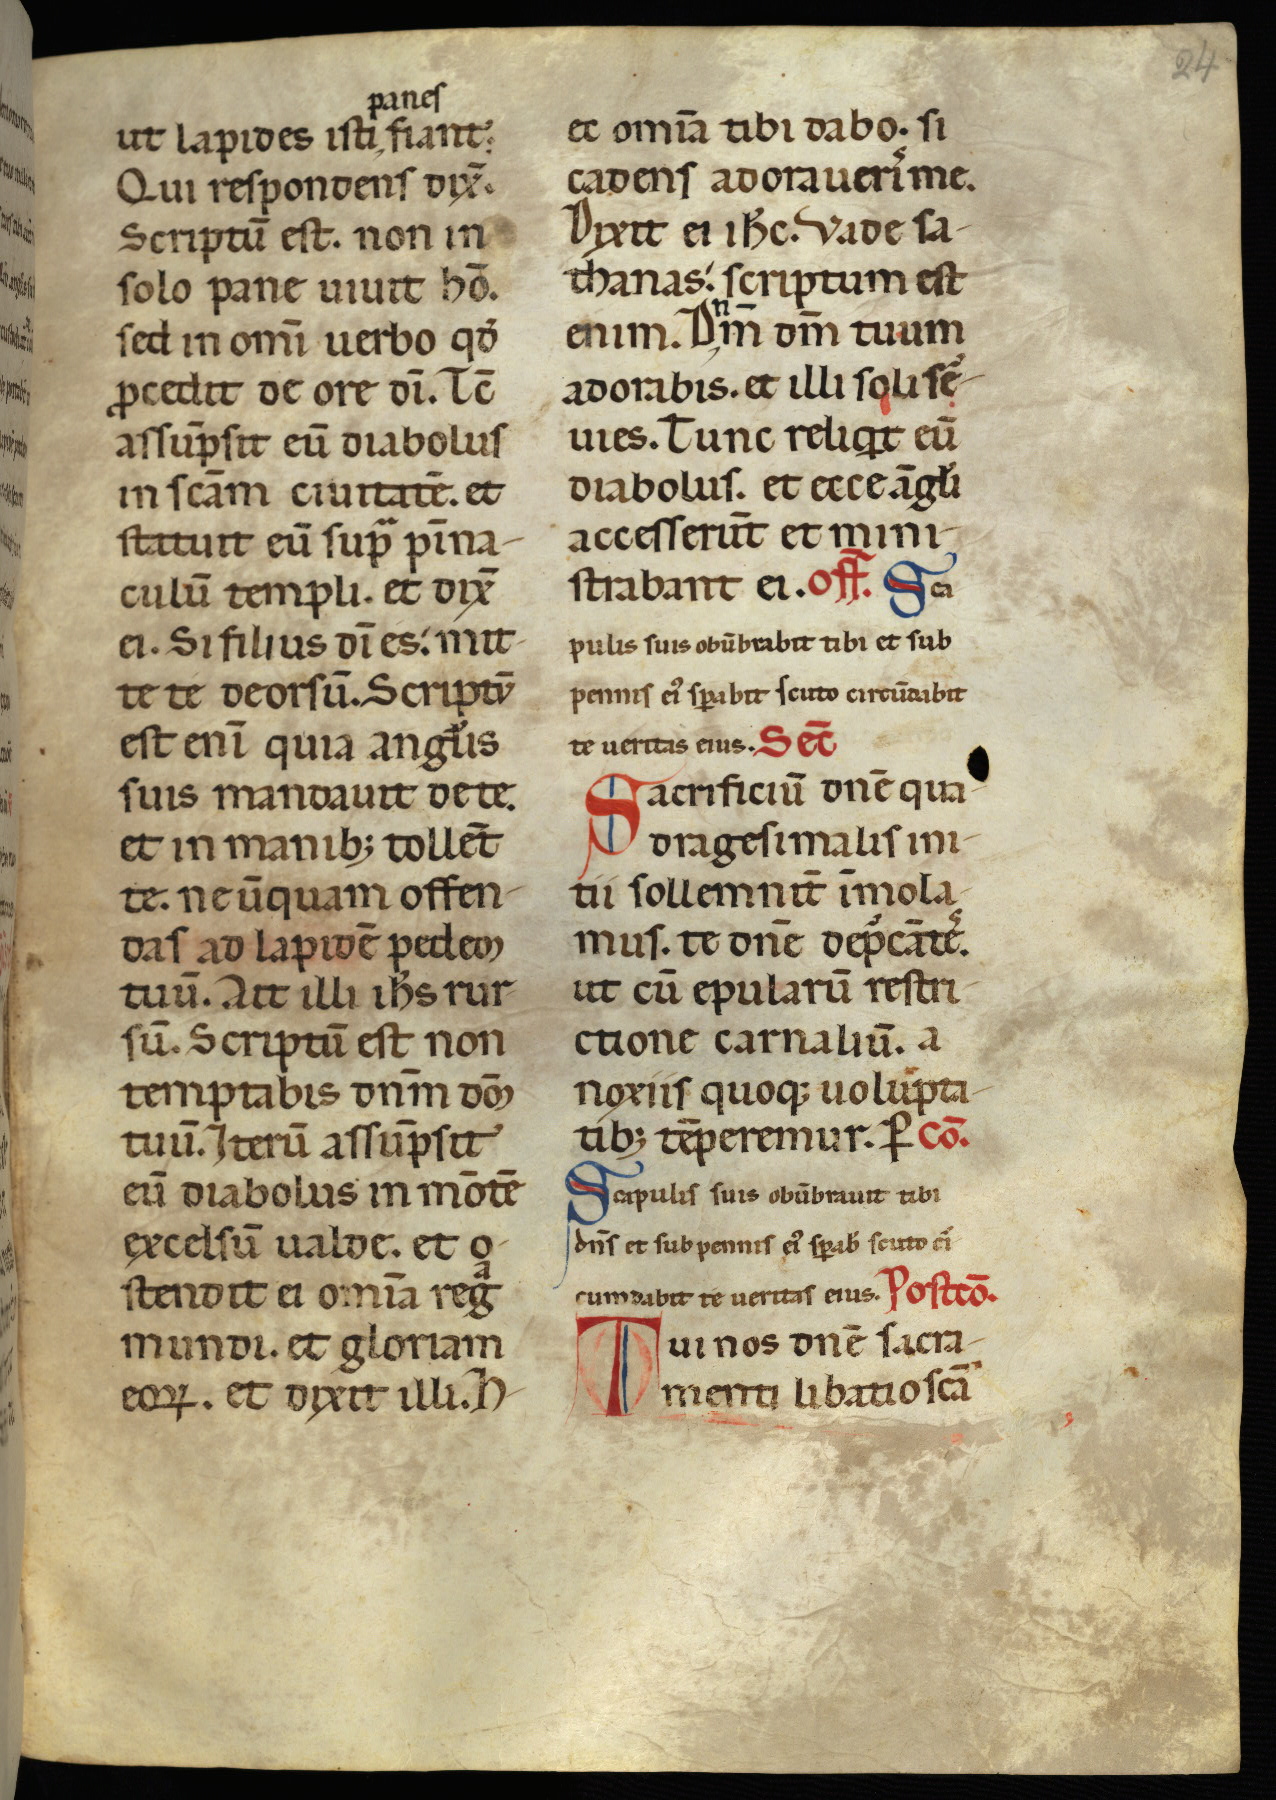 24
panes
ut lapides isti, fiant.
Qui respondens dix̄.
Scriptū est. non in
solo pane uiuit hō.
sed in om̄i uerbo qd̄
ꝓcedit de ore dī. Tc̄
assūpsit eū diabolus
in scām ciuitatē. et
statuit eū sup̄ pīna-
culū templi. et dix̄
ei. Si filius dī es. mit-
te te deorsū. Scriptū
est enī quia angłis
suis mandauit de te.
et in manib; tollēt
te. ne ūquam offen-
das ad lapidē pedem
tuū. Ait illi ih̄s rur-
sū. Scriptū est non
temptabis dn̄m dōm
tuū. Iterū assūpsit
eū diabolus in mōtē
excelsū ualde. et o-
stendit ei om̄ia regᵃ
mundi. et gloriam
eoꝝ. et dixit illi. h-
ec om̄ia tibi dabo. si
cadens adorauerı̉ me.
Dixit ei ih̄c. Vade sa-
thanas. scriptum est
enim. Dⁿm̄ dm̄ tuum
adorabis. et illi soli sē-
uies. Tunc reliqͥt eū
diabolus. et ecce āgłi
accesserūt et mini-
strabant ei. Off̄. Sca
pulis suis obūbrabit tibi et sub
pennis eı̉ sꝑabit scuto circūdabit
te ueritas eius. Sec̄
Sacrificiū dn̄e qua-
dragesimalis ini-
tii sollemnit̄ īmola-
mus. te dn̄e dep̄cātes.
ut cū epularū restri-
ctione carnaliū. a
noxiis quoq; uolupta-
tib; tēperemur. P̄ Cō.
Scapulis suis obūbrauit tibi
dn̄s et sub pennis eı̉ sꝑab̄ scuto cı̄
cumdabit te ueritas eius. Postcō.
Tui nos dn̄e sacra-
menti libatio scā